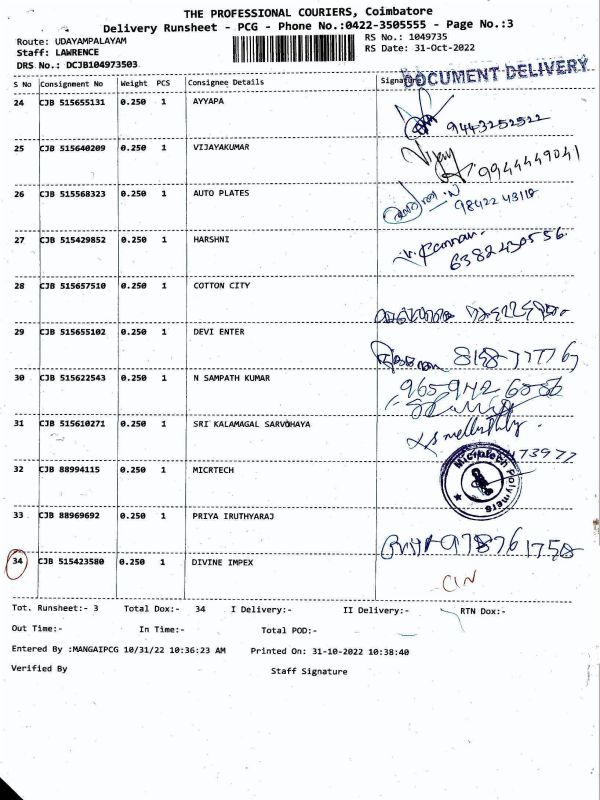 THE PROFESSIONAL COURIERS, Coimbatore
Delivery Runsheet - PCG - Phone No.:0422-3505555 - Page No.:3
Route: UDAYAMPALAYAM RS No.: 1049735
Staff: LAWRENCE RS Date: 31-Oct-2022
DRS No.: DCJB104973503
DOCUMENT DELIVERY
S No Consignment No Weight PCS Consignee Details Signature
24 CJB 515655131 0.250 1 AYYAPA
9443252522
25 CJB 515640209 0.250 1 VIJAYAKUMAR Vijay
9944449041
26 CJB 515568323 0.250 1 AUTO PLATES
98422 43118
27 CJB 515429852 0.250 1 HARSHNI V. Kannan.
6382430556.
28 CJB 515657510 0.250 1 COTTON CITY
29 CJB 515655102 0.250 1 DEVI ENTER
30 CJB 515622543 0.250 1 N SAMPATH KUMAR
31 CJB 515610271 0.250 1 SRI KALAMAGAL SARVOHAYA
473977
32 CJB 88994115 0.250 1 MICRTECH
Microtech Polymers
33 CJB 88969692 0.250 1 PRIYA IRUTHYARAJ
34 CJB 515423580 0.250 1 DIVINE IMPEX
CIN
Tot. Runsheet:- 3 Total Dox:- 34 I Delivery:- II Delivery:- RTN Dox:-
Out Time:- In Time:- Total POD:-
Entered By :MANGAIPCG 10/31/22 10:36:23 AM Printed On: 31-10-2022 10:38:40
Verified By Staff Signature